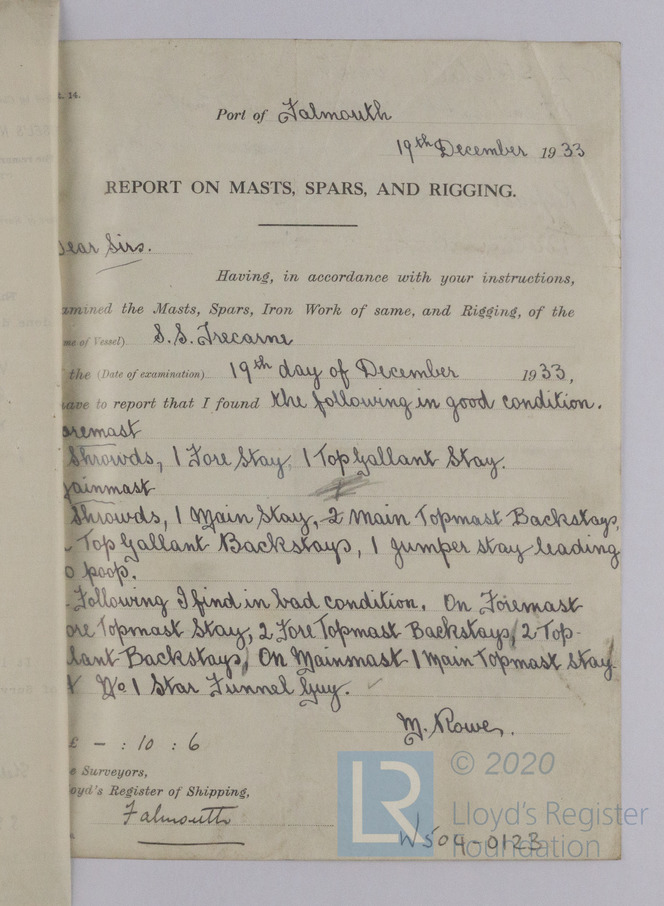 . 14.
Port of Falmouth
19th December 1933
REPORT ON MASTS, SPARS, AND RIGGING.
ear Sirs.
Having, in accordance with your instructions,
amined the Masts, Spars, Iron Work of same, and Rigging, of the
me of Vessel) S.S. Trecarne
the (Date of examination) 19th day of December 1933,
ave to report that I found the following in good condition.
oremast
Shrowds, 1 Fore Stay, 1 Top Gallant Stay.
ainmast
Shrowds, 1 Main Stay, 2 Main Topmast Backstays,
Top Gallant Backstays, 1 jumper stay leading
o poop.
Following I find in bad condition. On Foremast
ore Topmast Stay, 2 Fore Topmast Backstays, 2 Top-
lant Backstays, On Mainmast 1 Main Topmast Stay
No 1 Star Funnel Guy.
M. Rowe.
£ - : 10 : 6
e Surveyors,
oyd's Register of Shipping,
Falmouth
W504-0123
LR
© 2020
Lloyd's Register
Foundation